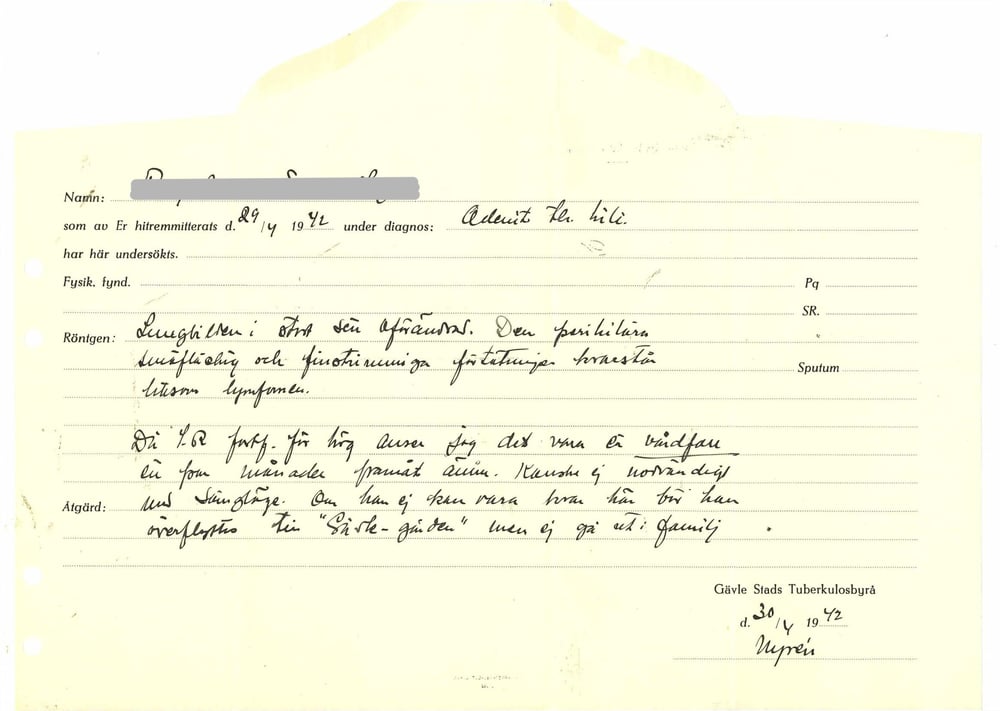 Namn:
som av Er hitremmitterats d. 29/4 1942 under diagnos: Adenit tbc. hili.
har här undersökts.
Fysik. fynd. Pq
SR.
Röntgen: Lungbilden i stort sett oförändrad. Den perihilära
småfläckig och finstrimmiga förtätningen kvarstår
liksom lymfomen.
Sputum
Då S.R fortf. för hög anser jag det vara ett vårdfall
ett par månader framåt ännu. Kanske ej nödvändigt
Åtgärd: med sängläge. Om han ej kan vara kvar här bör han
överflyttas till "Sävlegården" men ej gå ut i familj
Gävle Stads Tuberkulosbyrå
d. 30/4 1942
Nyrén